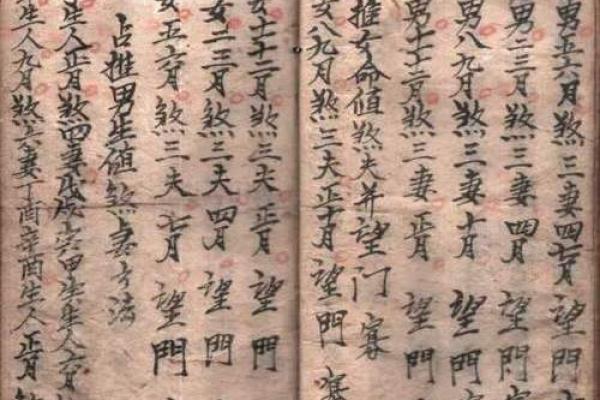 男五六月煞三妻四七月望門
男二三月煞三妻四月望門寡
男八九月煞三妻十月望門
男十十二月煞三妻正月望門
推女命值煞夫并望门寡
女八九月煞三夫正十月望門寡
女十十二月煞三夫正月望門
女二三月煞三夫四月望門
女五六月煞三夫七月望門
占推男生值煞妻
生人正月煞四妻戌
生人九月煞六妻丁酉辛酉生人正月